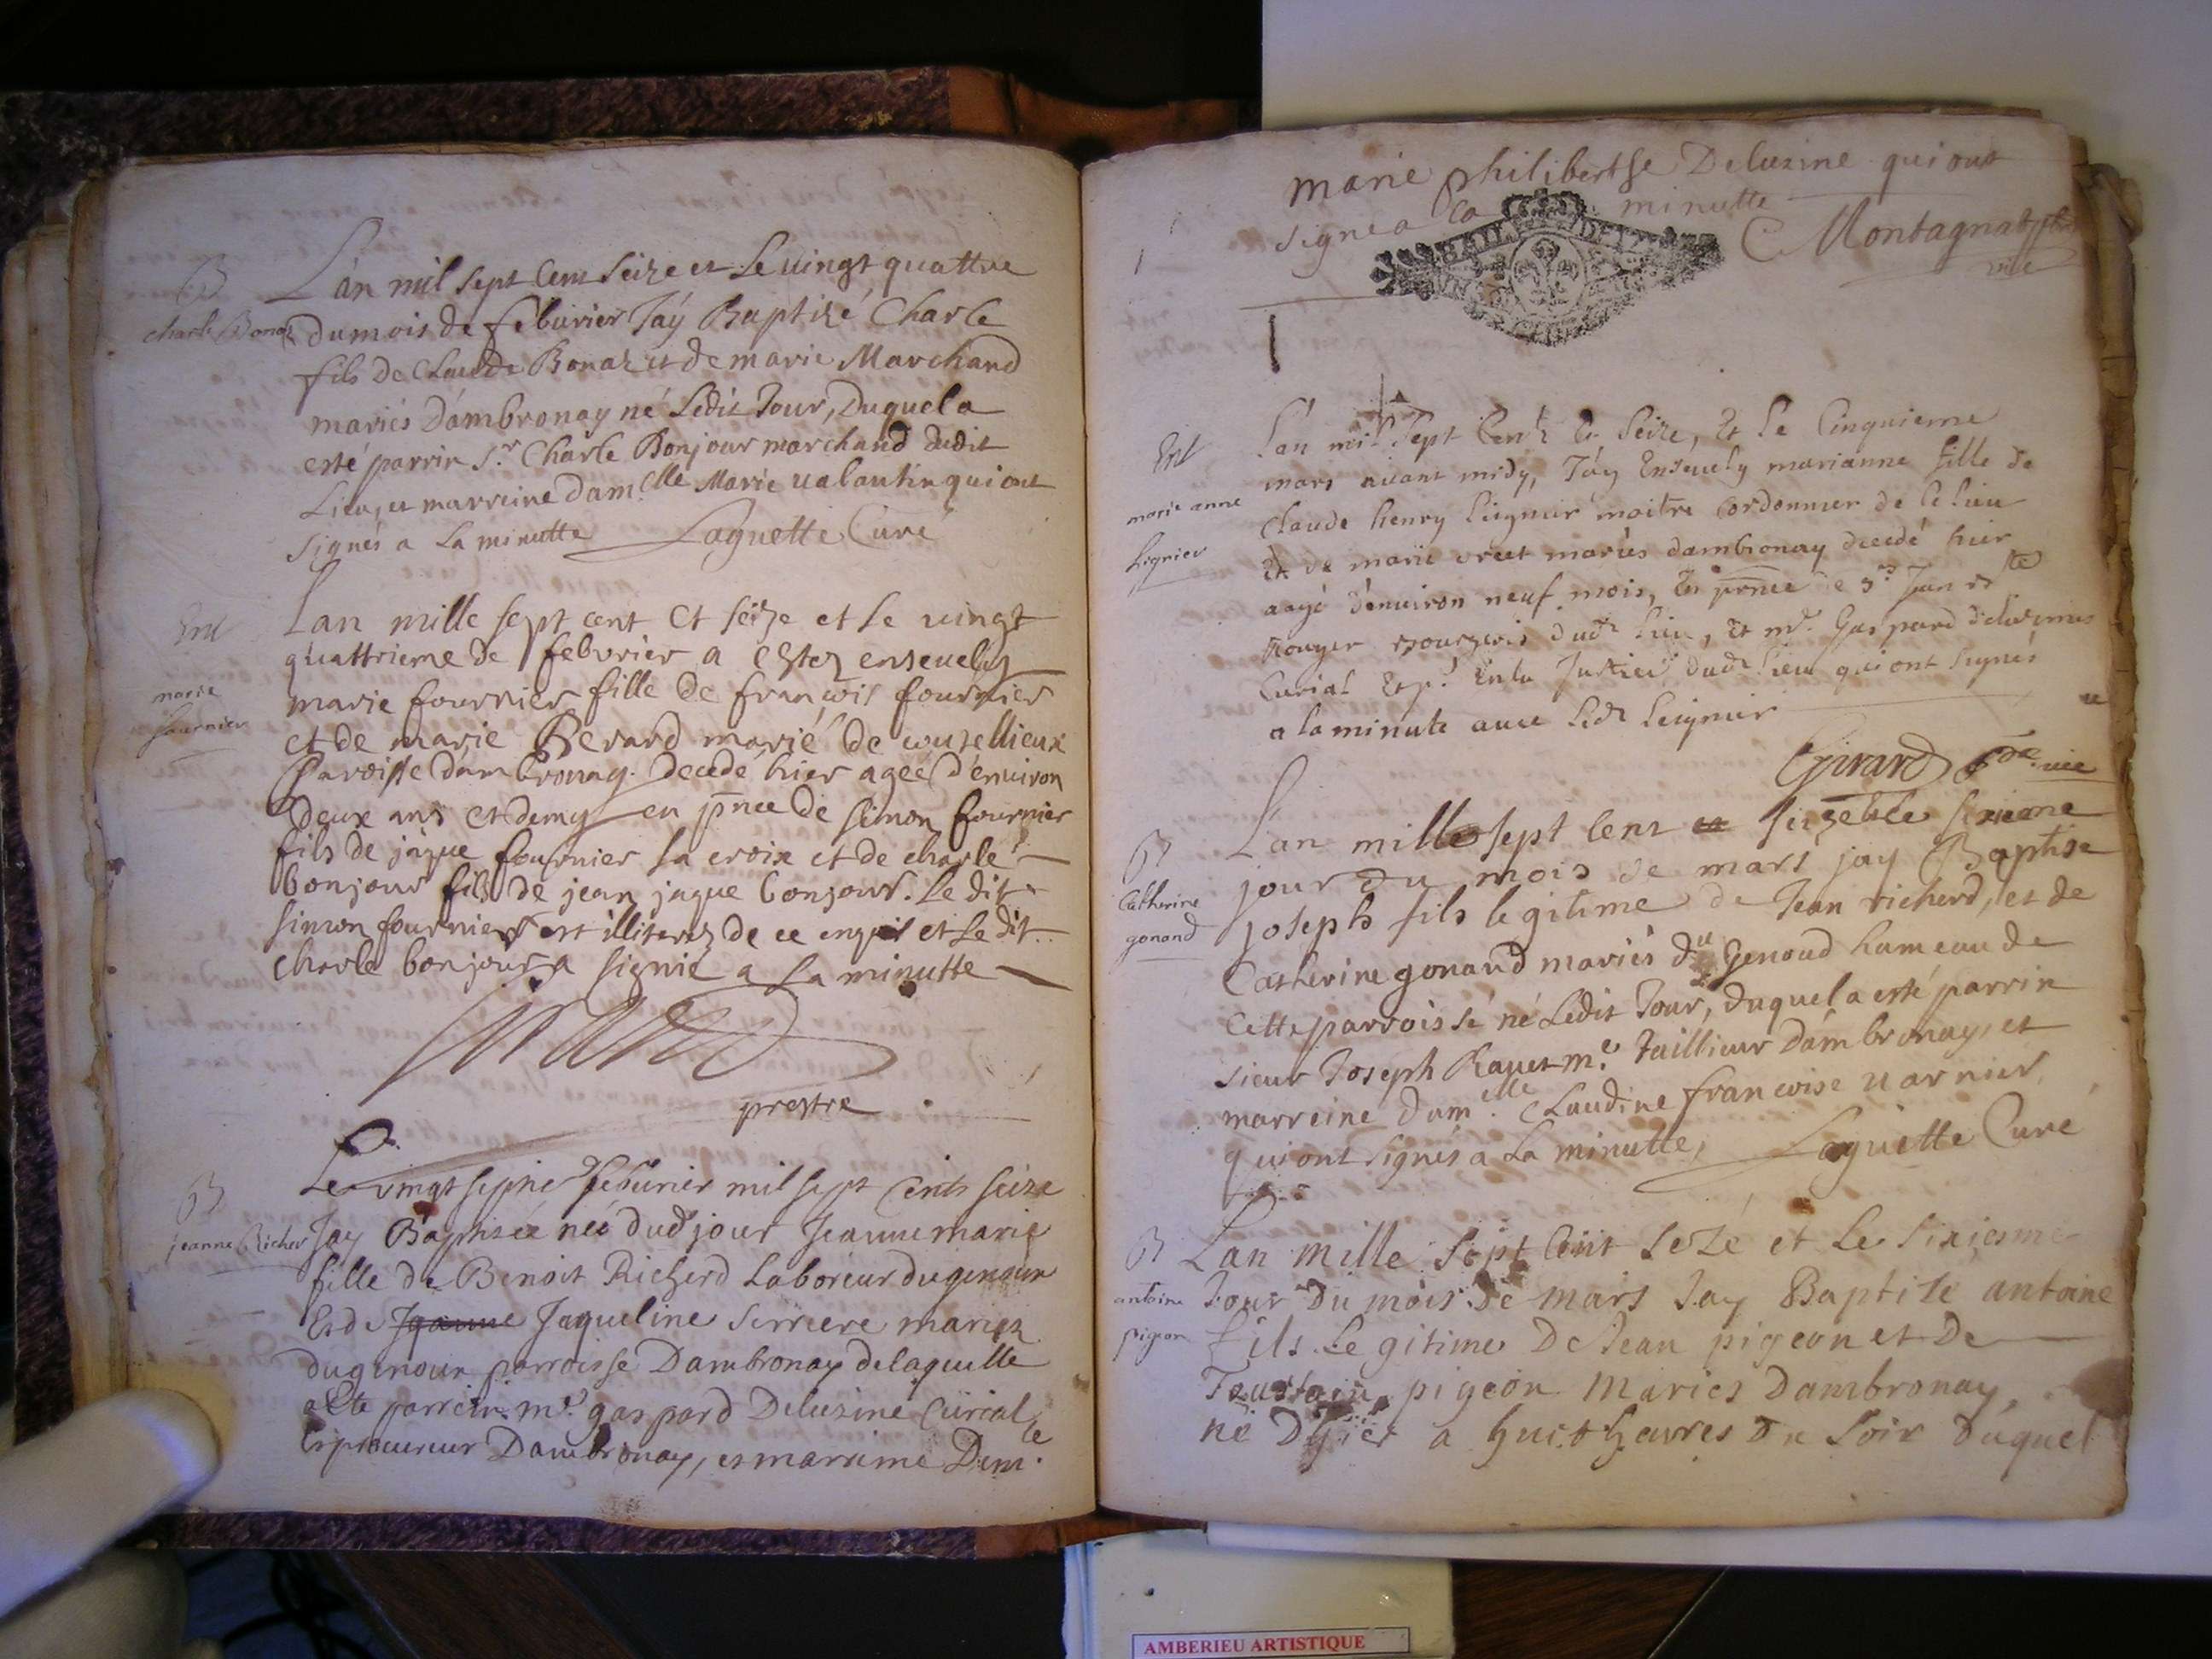 B
charle Bonaz
L'an mil sept Cent seize et le vingt quattre
du mois de feburier J'ay Baptizé Charle
fils de Claude Bonaz et de marie Marchand
mariés D'ambronay né Ledit Jour, Duquel a
esté parrin Sr. Charle Bonjour marchand dudit
Lieu, et marreine Damelle Marie valantin qui ont
Signés a La minutte Laguette Curé
Ent
marie
fournier
Lan mille sept cent et seize et le vingt
quattrieme de febvrier a estez ensevelis
marie fournier fille de françois fournier
et de marie Berard marié de couzellieux
Paroisse dambronay. decedé hier agée d'environ
deux ans et demy en pnce de simon fournier
fils de jaque fournier la croix et de charle
bonjour fils de jean jaque bonjour. Le dit
simon fournier est illiterez de ce enquis et le dit
charle bonjour a signié a la minutte
Girard
prestre
B
jeanne Richer
Le vingt septne feburier mil sept Cents seize
Jay Baptisée née dud jour Jeanne marie
fille de Benoit Richerd Laboreur du genoux
Et de Jeanne Jaqueline serriere mariez
du genoux parroisse Dambronay de laquelle
a Ete parrein me. gaspard Deluzine Curial
Et procureur Dambronay, et marraine Demlle.
marie philibertse Deluzine qui ont
signe a la minutte
C Montagnat pbre
vic
GEN
Ent
marie anne
Signier
L'an mil Sept Cent et Seize, Et le Cinquieme
mars avant midy, J'ay Ensevely marianne fille de
Claude henry Seignier maitre Cordonnier de Ce lieu
Et de marie mariés dambronay decedé hier
aagé d'environ neuf mois, En pnce de Sr. Jean
Rouyer Bourgeois dudt lieu, Et me. Gaspard deluzines
Curial Et pr. En la Justice dudt lieu qui ont signés
a la minute avec Ledt Seignier
Girard vic
B
Catherine
gonand
L'an mille sept Cent seize et le sixieme
jour du mois de mars jay Baptise
joseph fils legitime de Jean richerd, et de
Catherine gonand mariés du Genoud hameau de
Cette parroisse né Ledit Jour, duquel a esté parrin
sieur Joseph Ravet me. Taillieur D'ambronay, et
marreine damelle. Claudine francoise varnier
qui ont Signés a La minutte, Laguette Curé
B
antoine
pigeon
Lan mille sept Cent seze et Le sixiesme
Jour Du mois De mars Jay Baptize antoine
fils Legitime De Jean pigeon et De
pigeon Maries Dambronay
né Dhier a huit heures Du Soir Duquel
AMBERIEU ARTISTIQUE